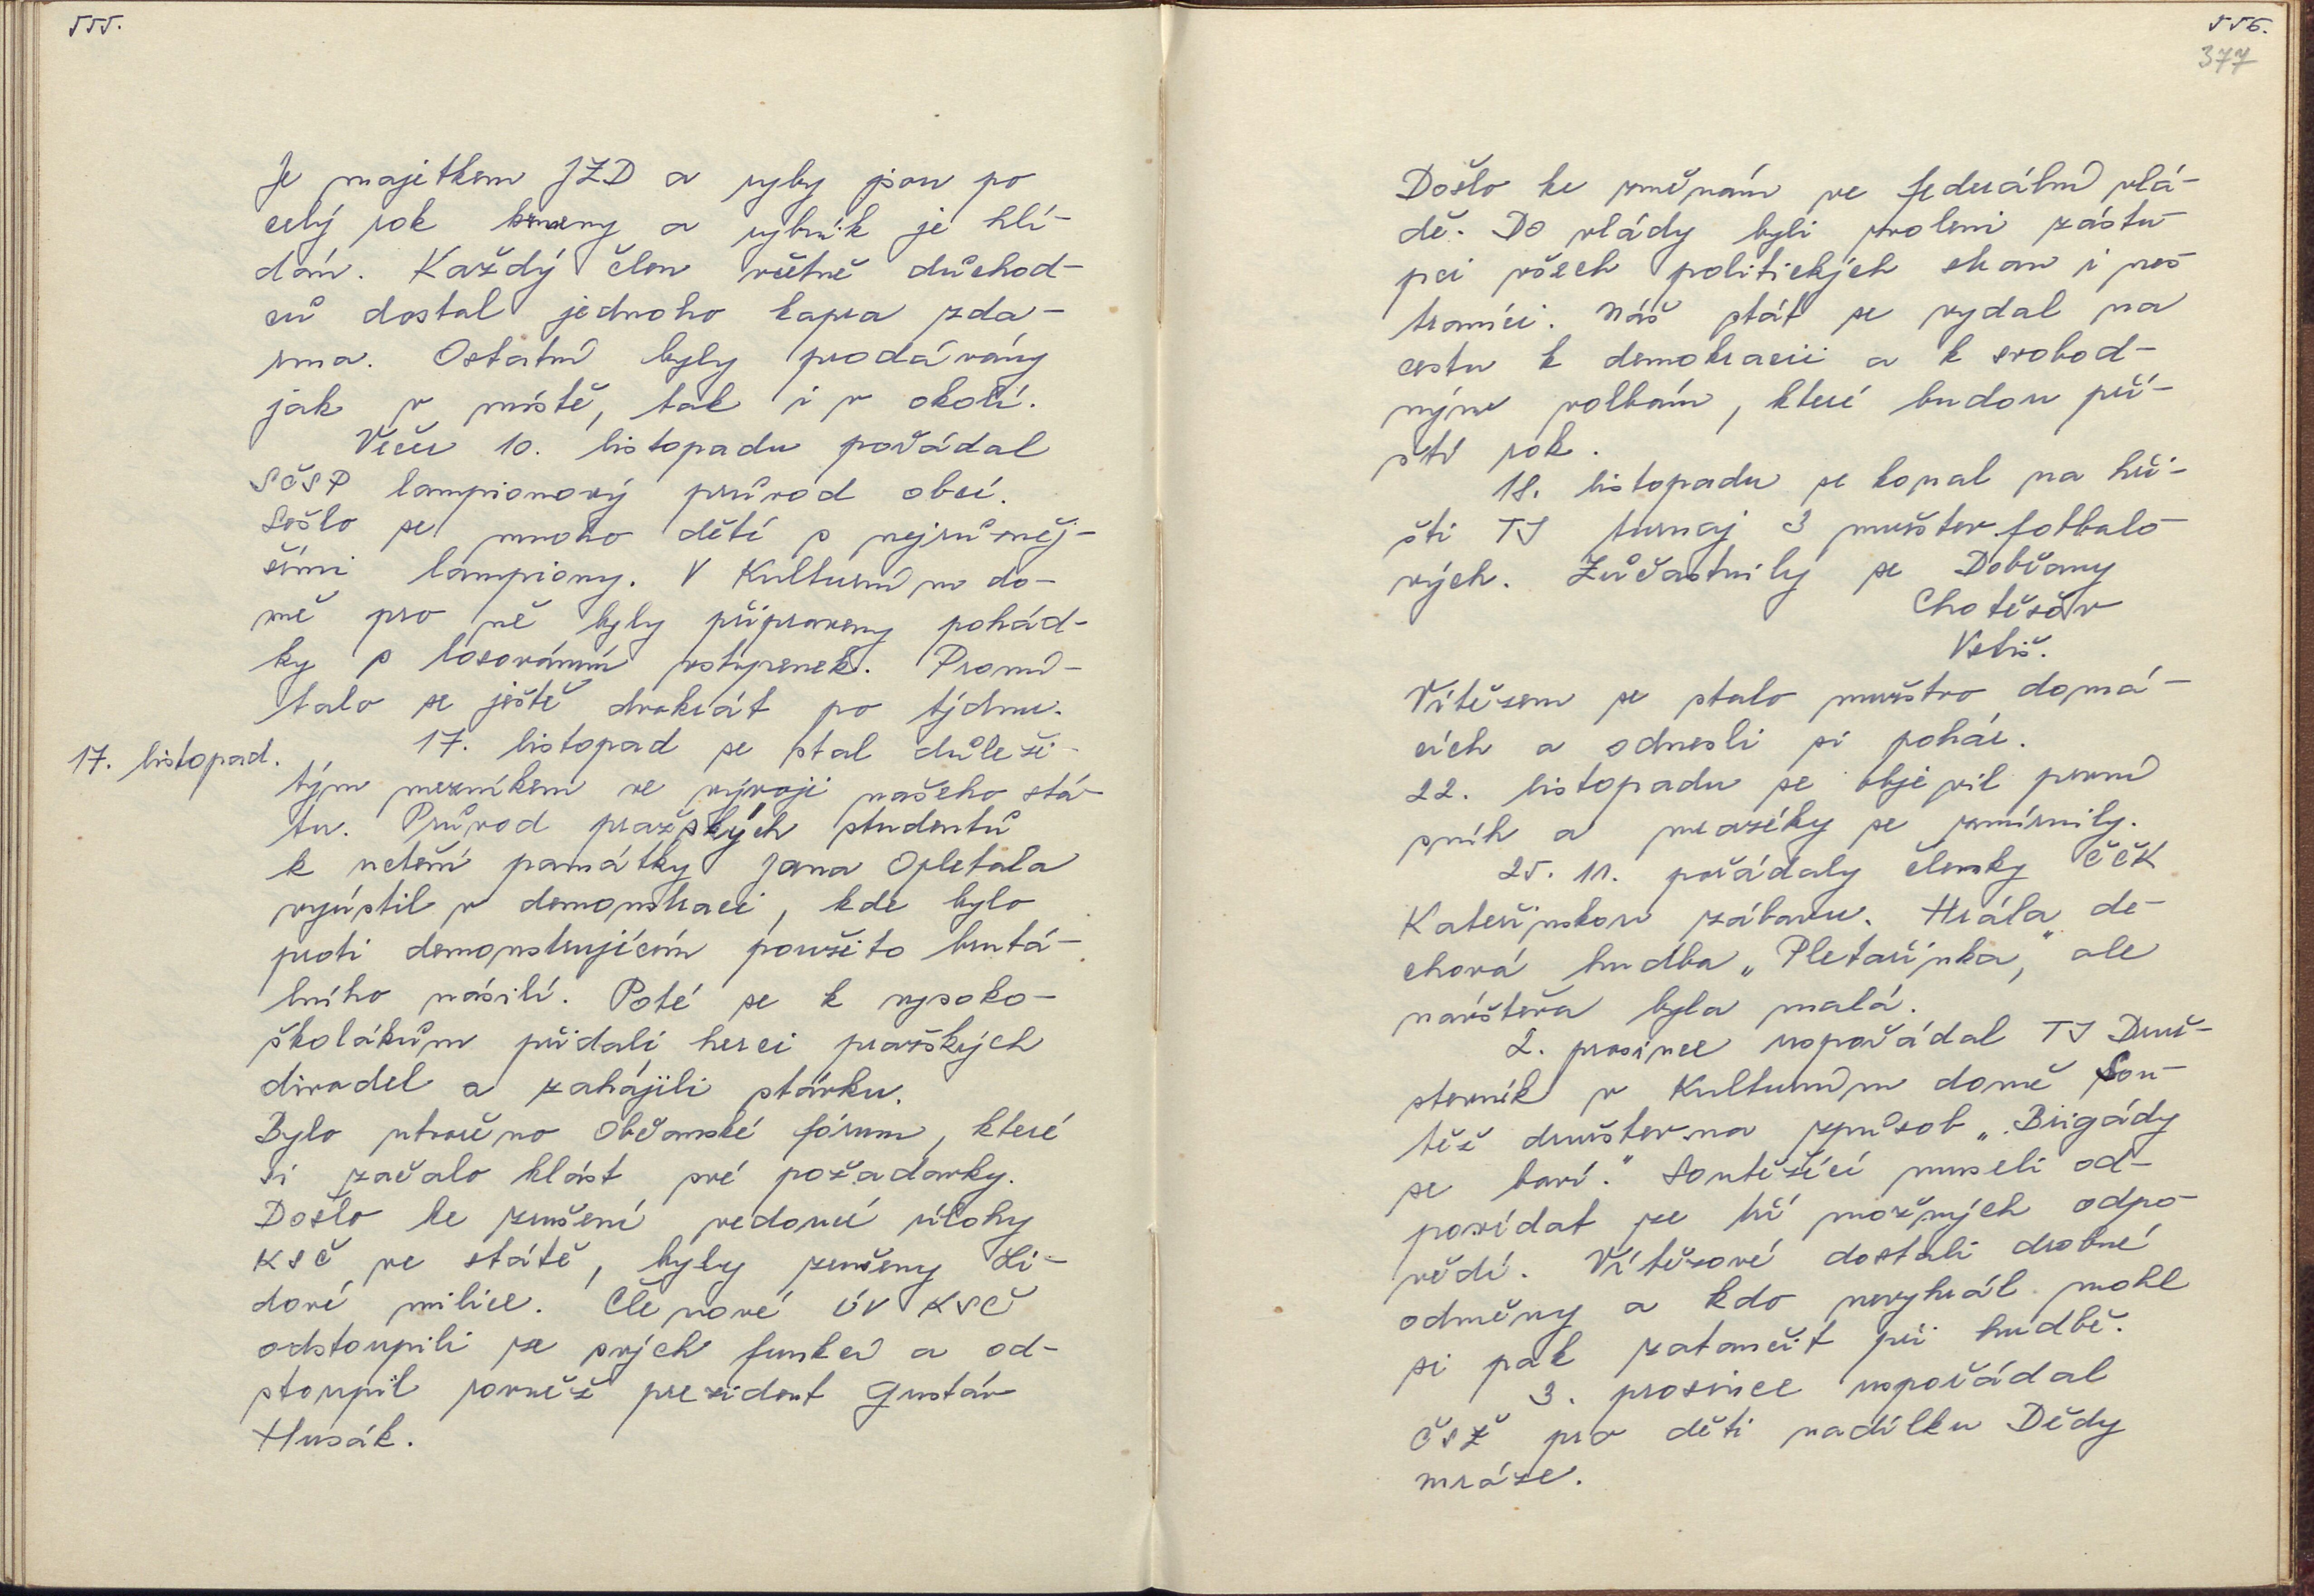 555.
Je majetkem JZD a ryby jsou po
celý rok krmeny a rybník je hlí-
dán. Každý člen včetně důchod-
ců dostal jednoho kapra zda-
rma. Ostatní byly prodávány
jak v místě, tak i v okolí.
Večer 10. listopadu pořádal
SČSP lampionový průvod obcí.
Sešlo se mnoho dětí s nejrůzněj-
šími lampiony. V Kulturním do-
mě pro ně byly připraveny pohád-
ky s losováním vstupenek. Promí-
talo se ještě dvakrát po týdnu.
17. listopad.
17. listopad se stal důleži-
tým mezníkem ve vývoji našeho stá-
tu. Průvod pražských studentů
k uctění památky Jana Opletala
vyústil v demonstraci, kde bylo
proti demonstrujícím použito brutá-
lního násilí. Poté se k vysoko-
školákům přidali herci pražských
divadel a zahájili stávku.
Bylo utvořeno Občanské fórum, které
si začalo klást své požadavky.
Došlo ke zrušení vedoucí úlohy
KSČ ve státě, byly zrušeny Li-
dové milice. Členové ÚV KSČ
odstoupili ze svých funkcí a od-
stoupil rovněž prezident Gustáv
Husák.
556.
377
Došlo ke změnám ve federální vlá-
dě. Do vlády byli zvoleni zástu-
pci všech politických stran i nes-
traníci. Náš stát se vydal na
cestu k demokracii a k svobod-
ným volbám, které budou pří-
ští rok.
18. listopadu se konal na hři-
šti TJ turnaj 3 mužstev fotbalo-
vých. Zúčastnily se Dobřany
Chotěšov
Vstiš.
Vítězem se stalo mužstvo domá-
cích a odnesli si pohár.
22. listopadu se objevil první
sníh a mrazíky se zmírnily.
25. 11. pořádaly členky ČČK
Kateřinskou zábavu. Hrála de-
chová hudba „Pletařinka", ale
návštěva byla malá.
2. prosince uspořádal TJ Druž-
stevník v Kulturním domě Sou-
těž družstev na způsob „Brigády
se baví." Soutěžící museli od-
povídat ze tří možných odpo-
vědí. Vítězové dostali drobné
odměny a kdo nevyhrál mohl
si pak zatančit při hudbě.
3. prosince uspořádal
ČSŽ pro děti nadílku Dědy
mráze.